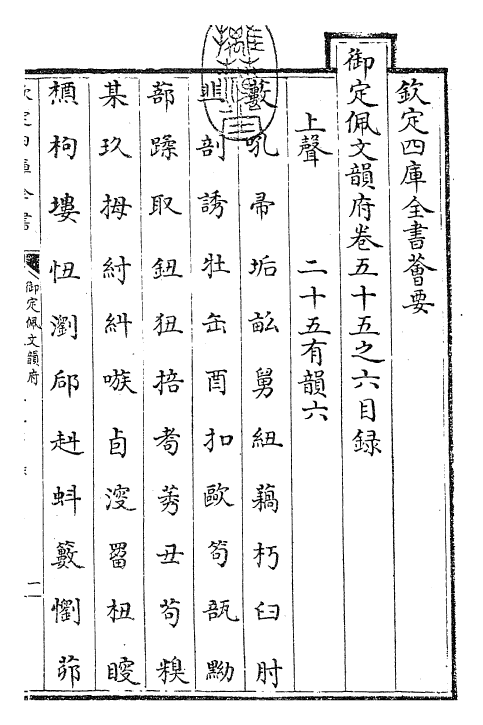 欽定四庫全書薈要
御定佩文韻府卷五十五之六目録
上聲　二十五有韻六
藪吼帚垢畝舅紐藕朽臼肘
韭剖誘牡缶酉扣歐笱瓿黝
部蹂取鈕狃掊耇莠丑苟糗
某玖拇紂糾嗾卣溲罶杻䁱
槱枸塿忸瀏郈赳蚪籔懰茆
欽定四庫全書
御定佩文韻府
一